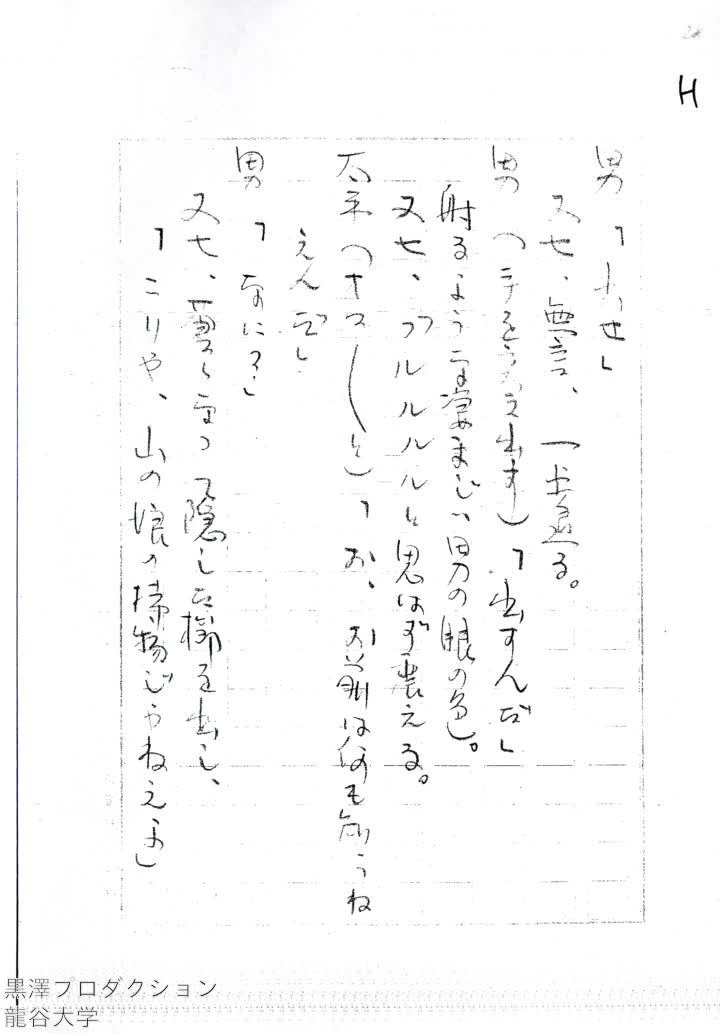 H
男「出せ」
又七、無言、一歩退る。
男（手をうかえ出す）「出すんだ」
射るような凄まじい男の眼の色。
又七、ブルルルルと思はず震える。
太平（オズ――と）「お、お前は何も知らね
えんだ」
男「なに？」
又七、蒼くなって隠した櫛を出し、
「こりや、山の娘の持物じゃねえよ」
黒澤プロダクション
龍谷大学